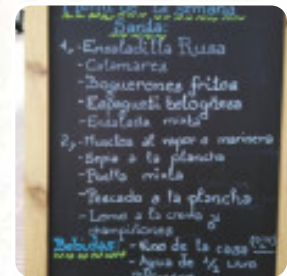 Menú de la semana
Santa:
1,- Ensaladilla Rusa
- Calamares
- Boquerones fritos
- Espagueti boloñesa
- Ensalada mixta
2,- Muslos al vapor a marinera
- Sepia a la plancha
- Paella mixta
- Pescado a la plancha
- Lomo a la crema y
champiñones
Bebidas: - Vino de la casa
- Agua de ½ Litro